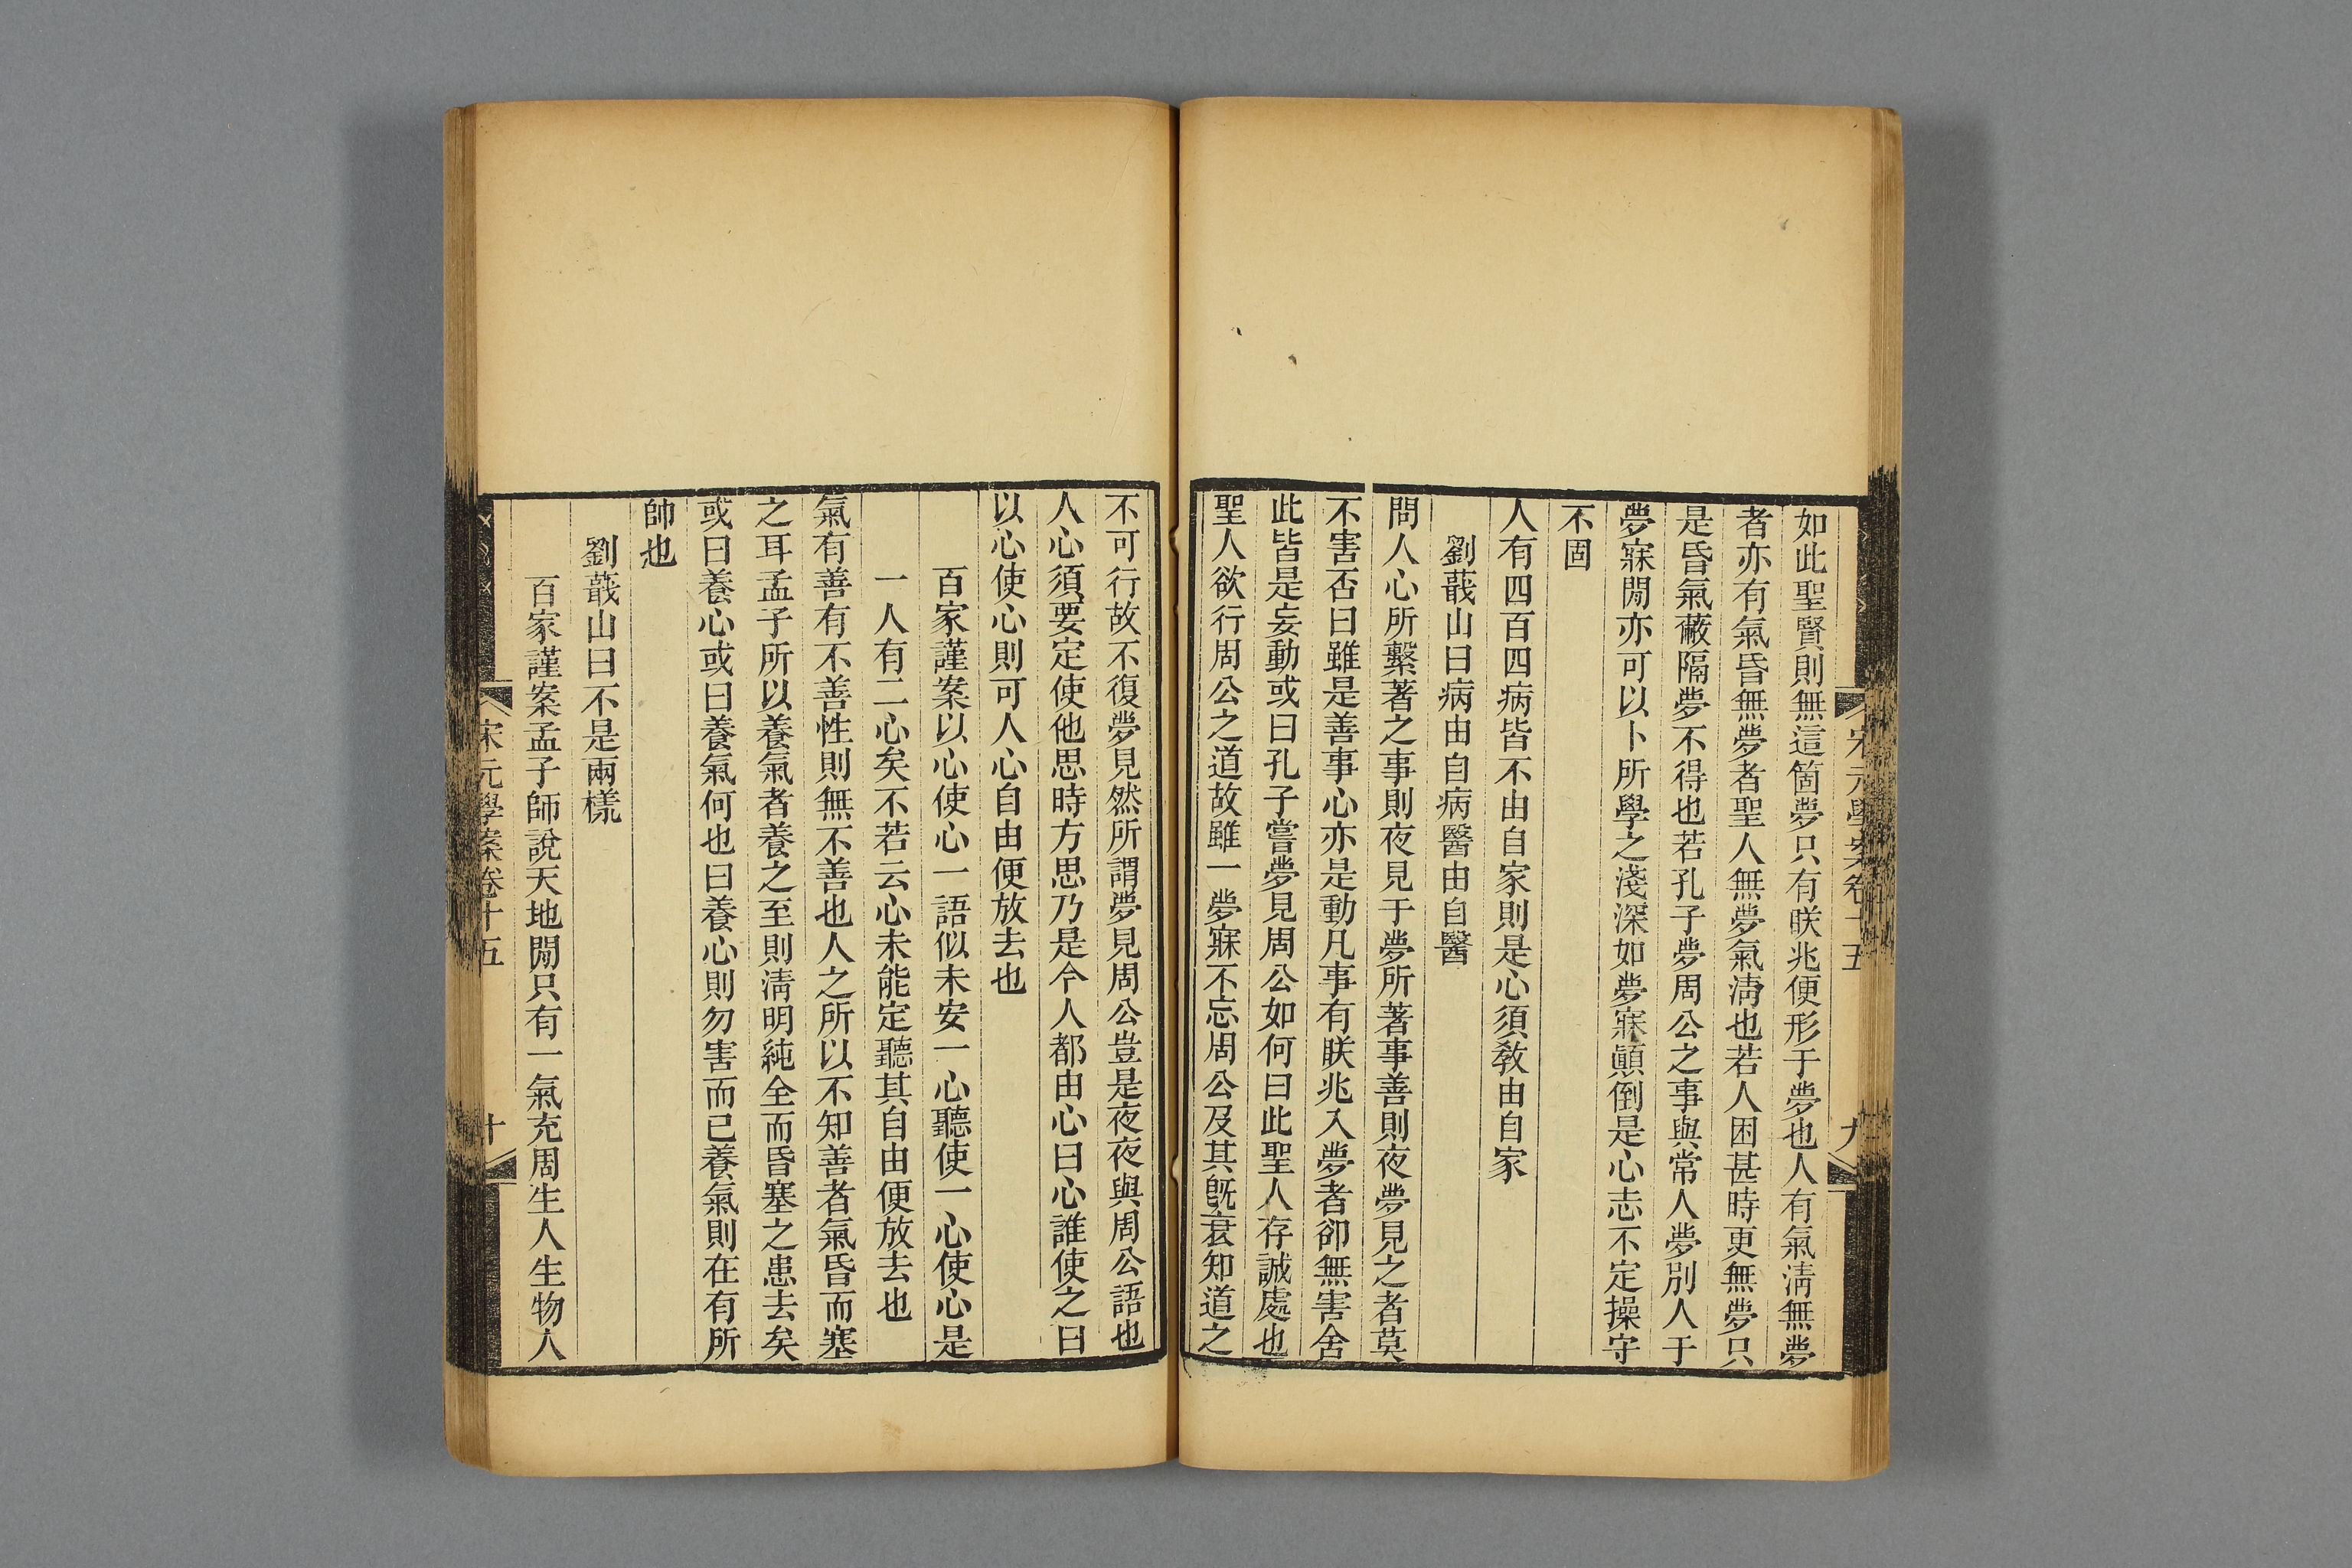 宋元學案卷十五
九
如此聖賢則無這箇夢只有眹兆便形于夢也人有氣淸無夢
者亦有氣昏無夢者聖人無夢氣淸也若人困甚時更無夢只
是昏氣蔽隔夢不得也若孔子夢周公之事與常人夢別人于
夢寐閒亦可以卜所學之淺深如夢寐顚倒是心志不定操守
不固
人有四百四病皆不由自家則是心須敎由自家
劉蕺山曰病由自病醫由自醫
問人心所繫著之事則夜見于夢所著事善則夜夢見之者莫
不害否曰雖是善事心亦是動凡事有眹兆入夢者卻無害舍
此皆是妄動或曰孔子嘗夢見周公如何曰此聖人存誠處也
聖人欲行周公之道故雖一夢寐不忘周公及其旣衰知道之
不可行故不復夢見然所謂夢見周公豈是夜夜與周公語也
人心須要定使他思時方思乃是今人都由心曰心誰使之曰
以心使心則可人心自由便放去也
百家謹案以心使心一語似未安一心聽使一心使心是
一人有二心矣不若云心未能定聽其自由便放去也
氣有善有不善性則無不善也人之所以不知善者氣昏而塞
之耳孟子所以養氣者養之至則淸明純全而昏塞之患去矣
或曰養心或曰養氣何也曰養心則勿害而已養氣則在有所
帥也
劉蕺山曰不是兩樣
百家謹案孟子師說天地閒只有一氣充周生人生物人
宋元學案卷十五
十